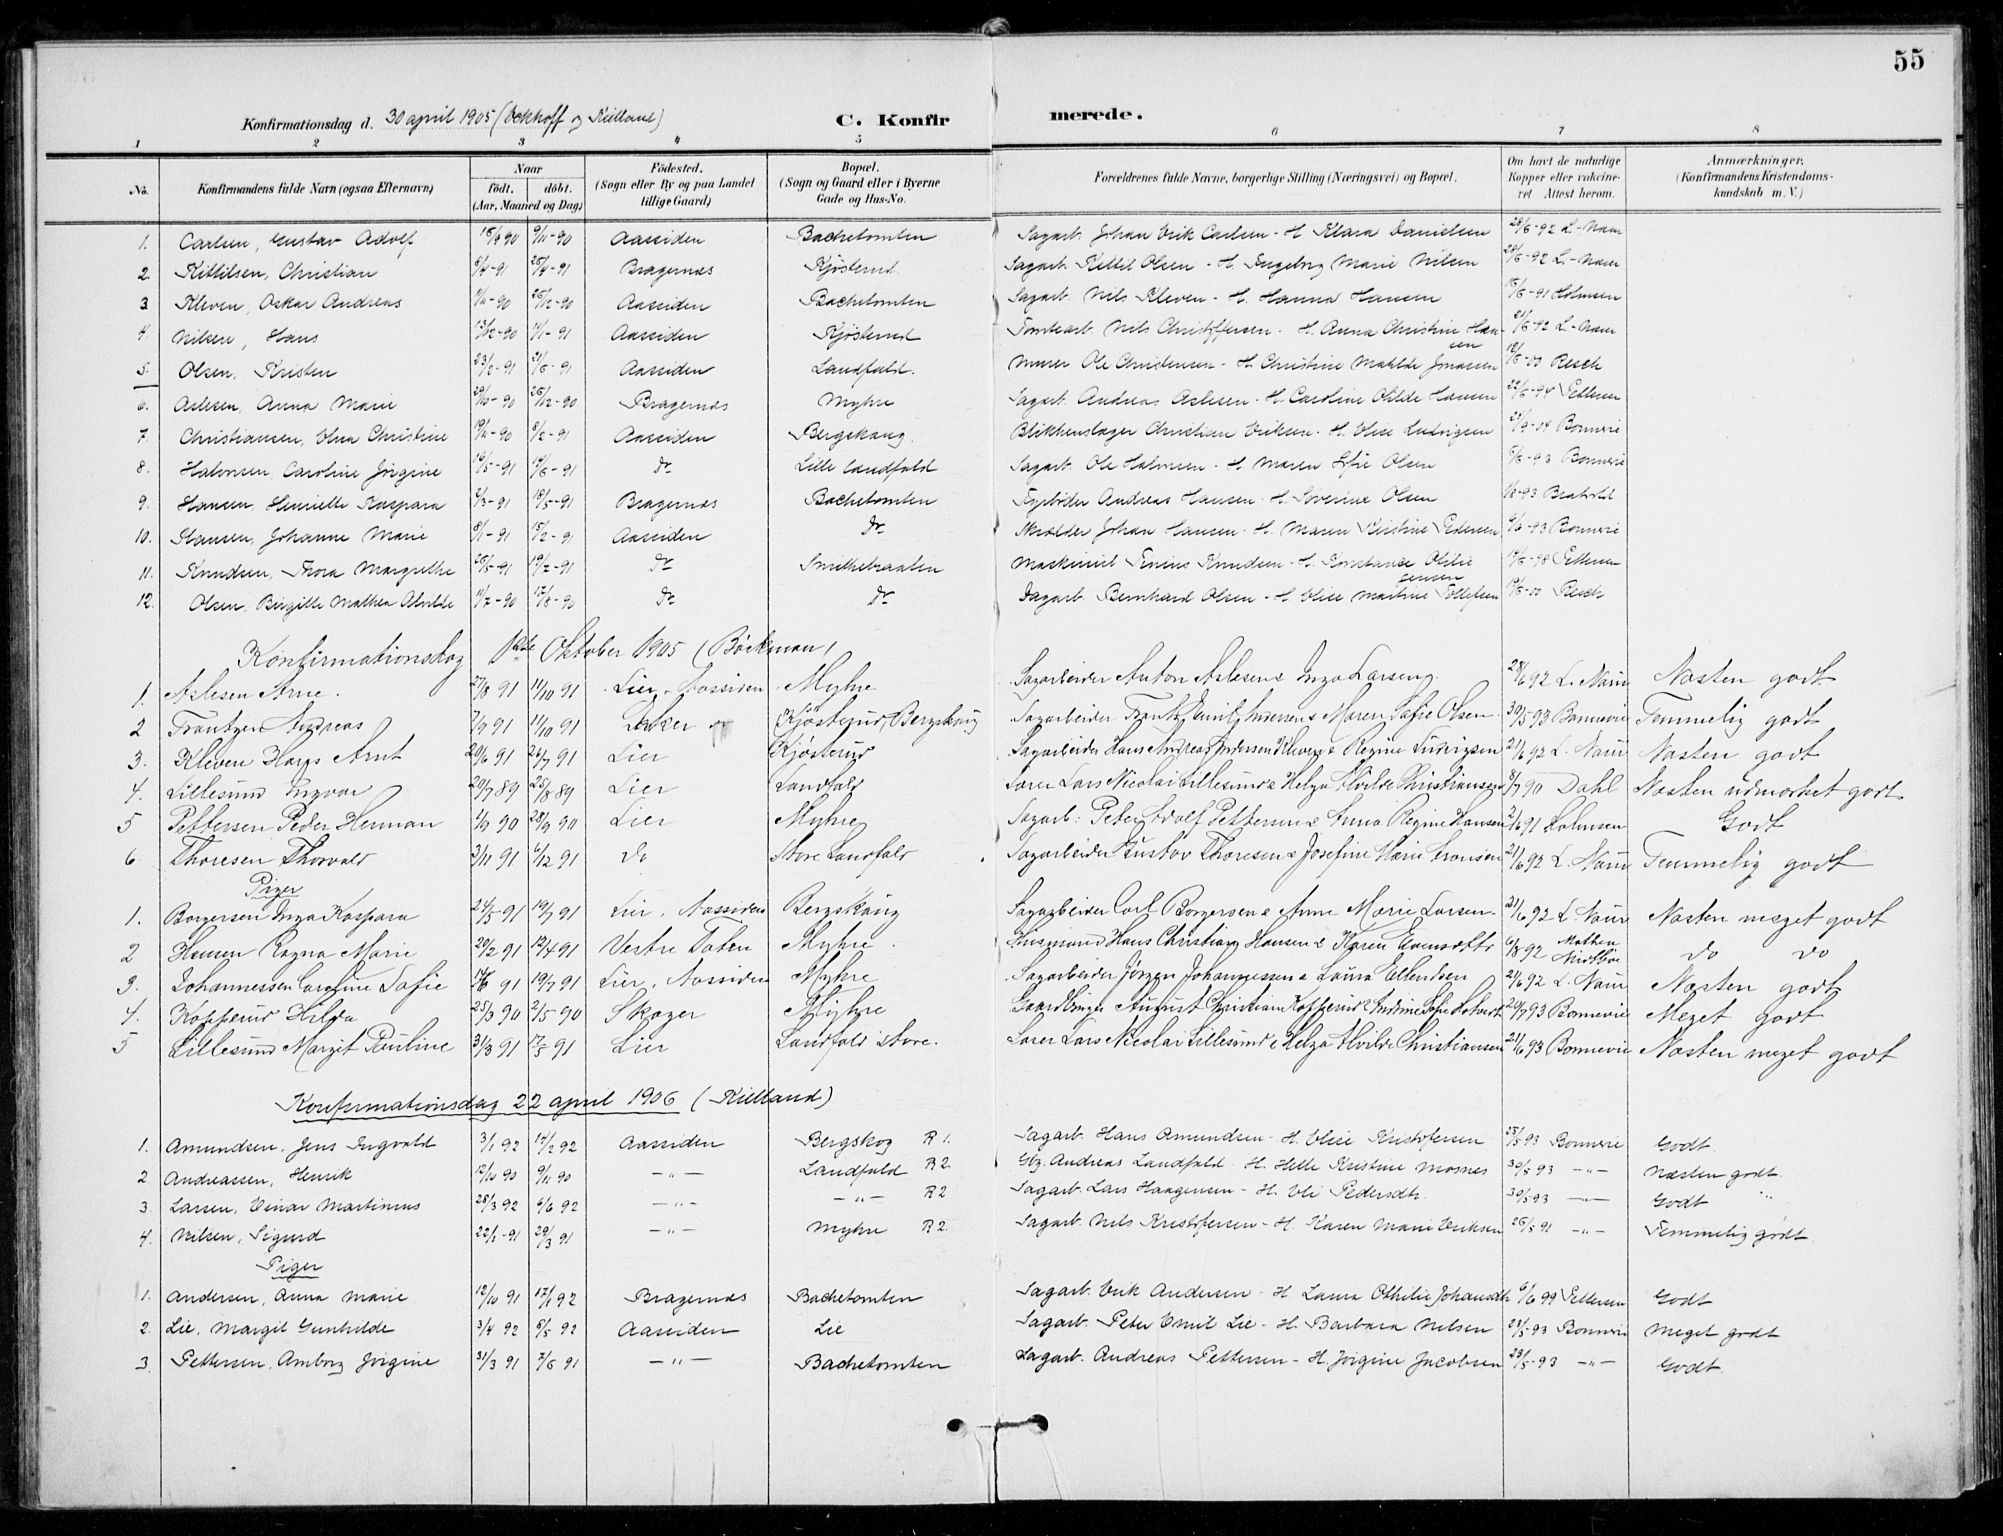 55
Konfirmationsdag d. 30 april 1905 (Eckhoff og Kielland)
C. Konfirmerede.
1 2 3 4 5 6 7 8
No. Konfirmandens fulde Navn (ogsaa Efternavn) Naar födt. döbt. (Aar, Maaned og Dag) Födested. (Sogn eller By og paa Landet tillige Gaard) Bopæl. (Sogn og Gaard eller i Byerne Gade og Hus-No. Forældrenes fulde Navne, borgerlige Stilling (Næringsvei) og Bopæl. Om havt de naturlige Kopper eller vakcineret Attest herom. Anmærkninger. (Konfirmandens Kristendomskundskab m. V.)
1. Carlsen, Gustav Adolf 18/9 90 9/11-90 Aassiden Bachetomten Sagarb. Johan Erik Carlsen - H. Klara Danielsen 28/6-92 L-Naur
2. Kittilsen, Christian 8/4-91 26/4-91 Bragernæs Kjösterud Sagarb. Kittil Olsen - H. Ingeborg Marie Nilsen 28/6-92 L-Naur
3. Kleven, Oskar Andreas 9/11-90 26/12-90 Aassiden Bachetomten Sagarb. Nils Kleven - H. Hanna Hansen 16/6-91 Holmsen
4. Nilsen, Hans 13/12-90 11/1-91 Aassiden Kjösterud Tomtearb. Nils Christoffersen - H. Anna Christine Hansen 21/6-92 L-Naur
5. Olsen, Kristen 23/2-91 21/6-91 Aassiden Landfald. Murer Ole Christensen - H. Christine Mathilde Jonassen 12/6-00 Resch
6. Aslesen, Anna Marie 29/10-90 26/12-90 Bragernæs Myhre Sagarb. Andreas Aslesen - H. Caroline Otilde Hansen 22/6-94 Pettersen
7. Christiansen, Elna Christine 19/11-90 8/2-91 Aassiden Bergskaug. Blikkenslager Christian Eriksen - H. Elise Ludvigsen 21/9-04 Bonnevie
8. Halvorsen, Caroline Jörgine 19/5-91 14/6-91 do Lille Landfald Sagarb. Ole Halvorsen - H. Maren Sofie Olsen 6/6-93 Bonnevie
9. Hansen, Henriette Kaspara 2/3-91 18/5-91 Bragernæs Bachetomten Fyrböder Andreas Hansen - H. Severine Olsen 1/8-93
10. Hansen, Johanne Marie 8/1-91 15/2-91 Aassiden do Skrædder Johan Hansen - H. Maren Kristine Pedersen 6/6-93 Bonnevie
11. Knudsen, Thora Margrethe 26/5-91 19/7-91 do Smithebraaten Maskinist Enius Knudsen - H. Konstance Otilie Jensen 14/6-98 Pettersen
12. Olsen, Birgitte Mathea Alvilde 11/7-90 17/8-90 do do Dagarb. Bernhard Olsen - H. Elise Martine Tollefsen 19/6-00 Resch
Konfirmationsdag 1ste Oktober 1905 (Böckman)
1. Aslesen Arne. 27/8 91 11/10 91 Lier, Aassiden Myhre Sagarbeider Anton Aslesen & Inga Larsen. 28/6 92 L. Naur Næsten godt
2 Frantzen Andreas 7/9 91 11/10 91 Kjösterud, Bergskaug Sagarbeider Frantz Emil Andersen & Maren Sofie Olsen. 30/5 93 Bonnevie Temmelig godt
3. Kleven Hans Arnt 20/6 91 26/7 91 Lier Kjösterud Sagarbeider Hans Andreas Andersen Kleven & Regine Ludvigsen 21/6 92 L. Naur Næsten godt
4. Lillesund Ingvar 29/7 89 25/8 89 Lier Landfald Sorer Lars Nicolai Lillesund & Helga Alvilde Christiansen 8/7 90 Dahl Næsten udmærket godt
5 Pettersen Peder Herman 4/9 90 28/9 90 Lier Myhre Sagarb: Peter Adolf Pettersen & Anna Regine Hansen 2/6 91 Holmsen Godt
6. Thoresen Thorvald 3/11 91 6/12 91 do Store Landfald Sagarbeider Gustav Thoresen & Josefine Marie Aronsen 21/6 92 L. Naur Temmelig godt
Piger
1. Borgersen Inga Kaspara 24/5 91 19/7 91 Lier, Aassiden Bergskaug Sagarbeider Carl Borgersen & Anne Marie Larsen. 21/6 92 L. Naur Næsten meget godt
2 Hansen Ragna Marie 20/2 91 12/4 91 Vestre Toten Myhre. Husmand Hans Christian Hansen & Karen Evensdtr 6/8 92 do do
3. Johannessen Caroline Sofie 14/6 91 19/7 91 Lier, Aassiden Myhre Sagarbeider Jörgen Johannessen & Laura Ellendsen 21/6 92 L. Naur Næsten godt
4. Kopperud Hilda 25/3 90 2/5 90 Skoger Myhre Gaardbruger August Christian Kopperud & Indine Sofie 20/7 93 Bonnevie Meget godt
5 Lillesund Margit Pauline 31/3 91 17/5 91 Lier Landfald store. Sorer Lars Nicolai Lillesund & Helga Alvilde Christiansen 21/6 93 Bonnevie Næsten meget godt
Konfirmationsdag 22 april 1906 (Kielland)
1. Amundsen, Jens Ingvald 3/1 92 14/2 92 Aassiden Bergskog R 1. Sagarb. Hans Amundsen - H. Elise Kristofersen 25/5 93 Bonnevie Godt.
2 Andreassen, Henrik 12/10 90 9/11 90 -"- Landfald R 2. Gbr. Andreas Landfald. H. Helle Kristine Mosnes 30/5 93 -"- Næsten godt.
3. Larsen, Einar Martinius 28/3 92 6/6 92 -"- -"- R 2 Sagarb. Lars Haagensen - H. Eli Pedersdtr. 30/5 93 -"- Godt "
4. Nilsen, Sigurd 22/1-91 29/3 91 -"- Myhre R 2. Sagarb. Nils Kristofersen - H. Karen Marie Eriksen 26/5 91 -"- Temmelig godt.
Piger
1. Andersen, Anna Marie 12/10 91 17/1 92 Bragernæs Bachetomten Sagarb. Erik Andersen - H. Laura Othilie Johansdtr 6/6 99 Pettersen Godt
2. Lie, Margit Gunhilde 3/4 92 8/5 92 Aassiden Lie Sagarb. Peter Emil Lie - H. Barbara Nilsen 23/5-93 Bonnevie Meget godt
3. Pettersen, Amborg Jörgine 31/3 91 7/6 91 -"- Bachetomten Sagarb. Andreas Pettersen - H. Jörgine Jacobsen 23/5-93 -"- Godt.